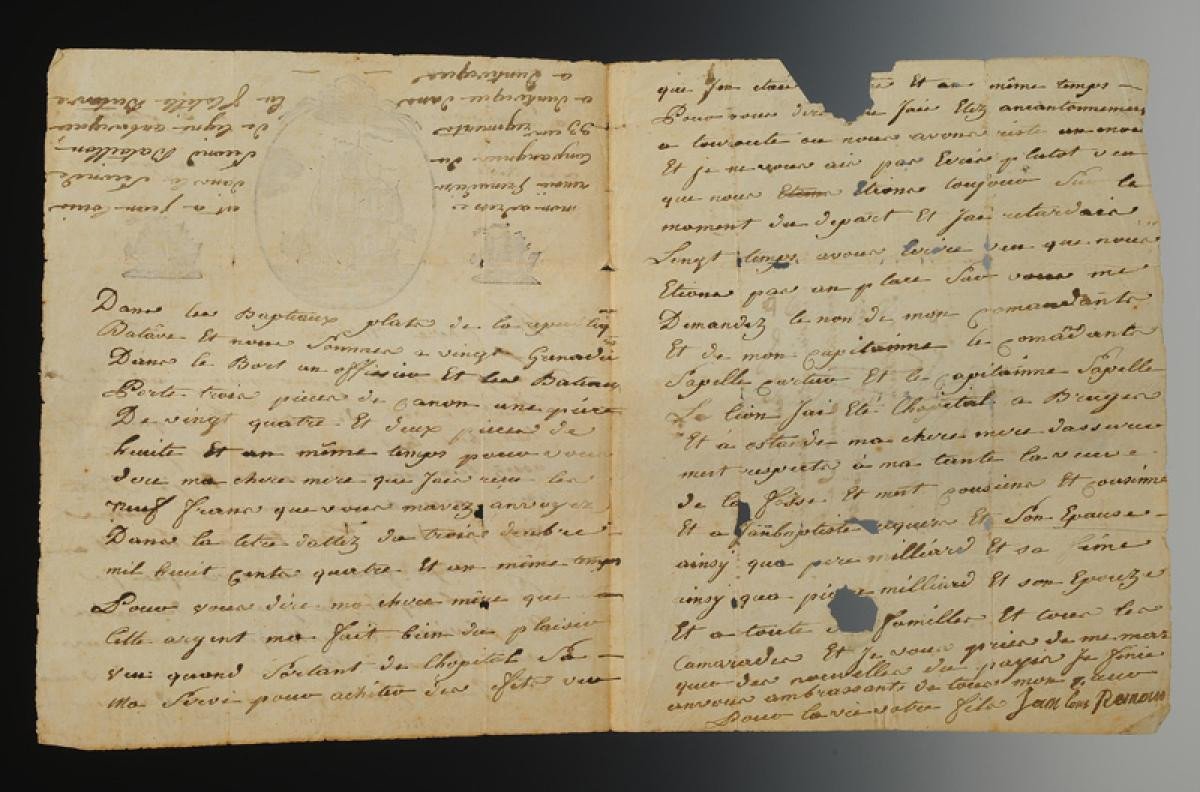 mon adresse
est a jean louis
renou Grenadier
dans le Segonde
Compangnie du
Segond Batallion
33 eme regiments
de ligne enbarquée
a Dunkerque dans
la flotille Batavre
a Dunkerque
Dans les Bapteaux plats de la republiq
Batâve et nous Sommes a vingt Grenadie
Dans le Bort un offisier Et les Batimens
Porte trois pieces de canon une piére
De vingt quatre Et deux pieces de
huite Et an même temps pour vous
dire ma chere mére que Jais reçu les
neuf frans que vous mavez anvoyez
Dans la létre dattéz du trois
mil huit cents quatre Et an même temps
Pour vous dire ma chere mére que
Cette argent ma fait bien du plaisir
veu quand Sortant de lhopital Sa
ma Servi pour achéter des
que Jen Et an même temps
Pour vous dire Jaie Etéz ancantonnemens
a touroute ou nous avons risté un mois
Et je ne vous ais pas Ecris plutot veu
que nous Etions Etions toujour Sur le
moment du depart Et Jai retardais
Lingt temps avous Ecrire veu que nous
Etions pas an place Sur vous me
Demandéz le non de mon Comandante
Et de mon Capitainne le Comâdante
Sapelle Cartier Et le Capitainne Sapelle
Le lion Jais Eté lhopital a Bruges
Et a ostande ma chere mere dassurer
mest respects à ma tante la veuve
de la fosse Et mest Cousiens Et Cousinne
Et a Jânbaptiste Et Son Epouse
ainsy qua pere milliard Et sa féme
ainsy qua milliard Et son Epouze
Et a toute familles Et tous les
Camarades Et Je vous pries de me mar
quer des nouvelles du payis Je finie
anvous ambrassants de tous mon Coeur
Pour lavie votre fils Jean louis Renou